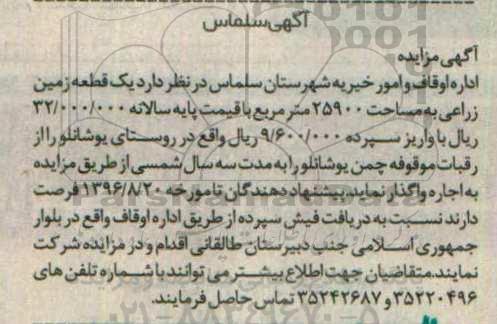 آگهی سلماس
آگهی مزایده
اداره اوقاف و امور خیریه شهرستان سلماس در نظر دارد یک قطعه زمین
زراعی به مساحت ۲۵۹۰۰ متر مربع با قیمت پایه سالانه ۳۲/۰۰۰/۰۰۰
ریال با واریز سپرده ۹/۶۰۰/۰۰۰ ریال واقع در روستای یوشانلو را از
رقبات موقوفه چمن یوشانلو را به مدت سه سال شمسی از طریق مزایده
به اجاره واگذار نماید، پیشنهاد دهندگان تا مورخه ۱۳۹۶/۸/۲۰ فرصت
دارند نسبت به دریافت فیش سپرده از طریق اداره اوقاف واقع در بلوار
جمهوری اسلامی جنب دبیرستان طالقانی اقدام و در مزایده شرکت
نمایند. متقاضیان جهت اطلاع بیشتر می توانند با شماره تلفن های
۳۵۲۲۰۴۹۶ و ۳۵۲۴۲۶۸۷ تماس حاصل فرمایند.